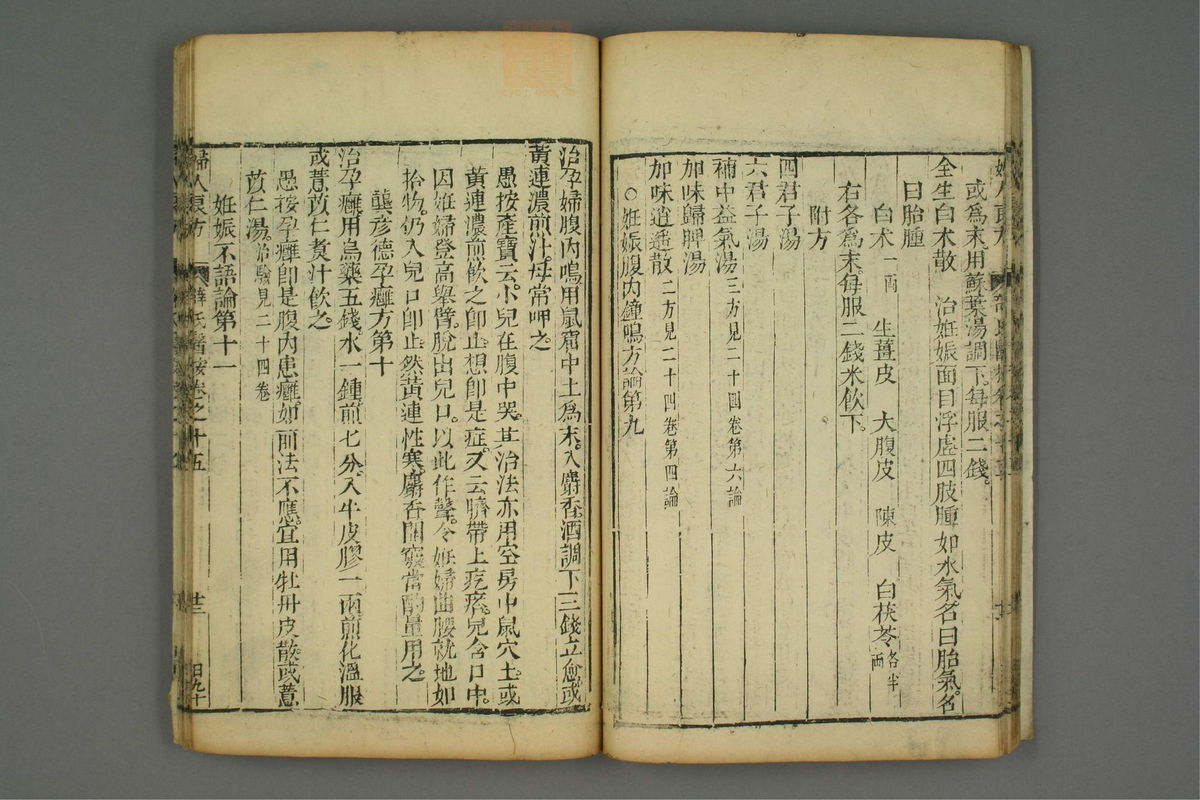 或為末用蘇葉湯調下每服二錢。
全生白术散　治姙娠面目浮虛四肢腫如水氣名曰胎氣。名
曰胎腫
白术一兩　生薑皮　大腹皮　陳皮　白茯苓各半兩
右各為末每服二錢米飲下。
附方
四君子湯
六君子湯
補中益氣湯三方見二十四卷第六論
加味歸脾湯
加味逍遥散二方見二十四卷第四論
○姙娠腹內鐘鳴方論第九
治孕婦腹內鳴用鼠窟中土為末。入麝香酒調下三錢立愈。或
黃連濃煎汁。母常呷之。
愚按產寶云。小兒在腹中哭。其治法亦用空房中鼠穴土。或
黃連濃煎飲之即止。想即是症。又云臍帶上疙瘩。兒含口中。
因姙婦登高舉臂。脫出兒口。以此作聲。令姙婦曲腰就地如
拾物。仍入兒口即止。然黃連性寒。麝香開竅。當酌量用之。
龔彥德孕癰方第十
治孕癰。用烏藥五錢。水一鍾煎七分。入牛皮膠一兩煎化溫服
或薏苡仁煑汁飲之。
愚按孕癰即是腹內患癰。如前法不應。宜用牡丹皮散。或薏
苡仁湯。治驗見二十四卷
姙娠不語論第十一
婦人良方　薛氏醫按卷之十五　廿二